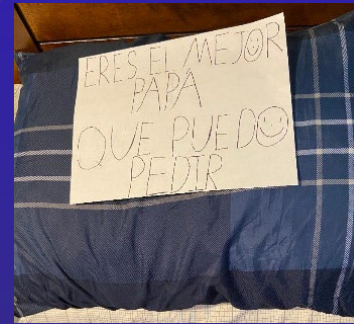 ERES EL MEJOR
PAPA
QUE PUEDO
PEDIR